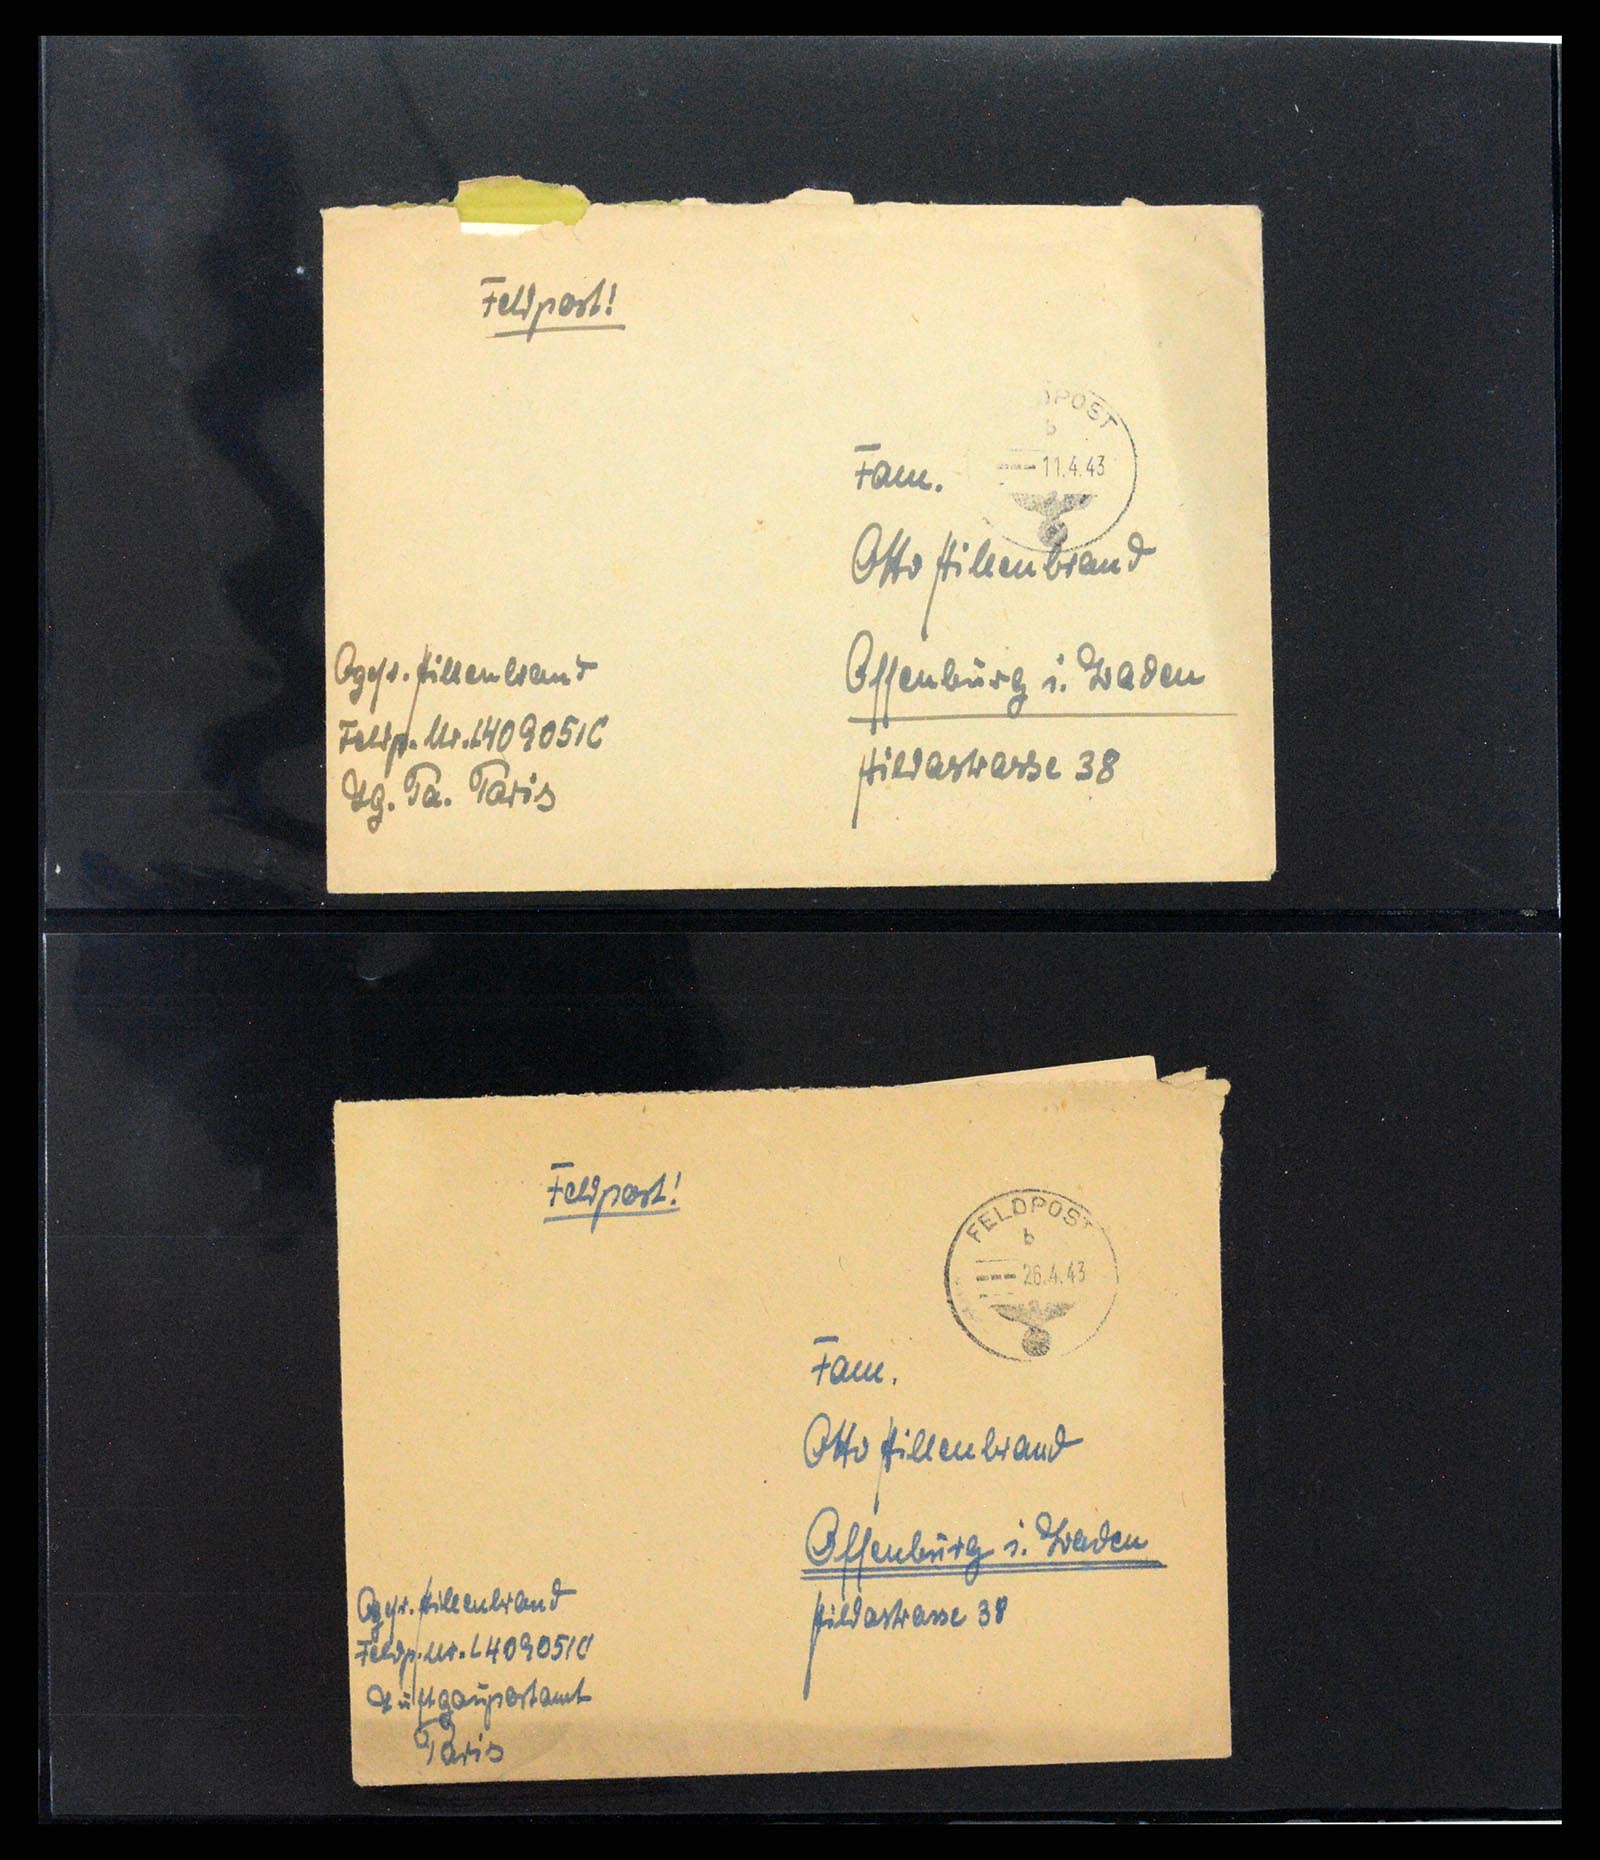 Feldpost!
FELDPOST
b
11.4.43
Fam.
Otto Hillenbrand
Offenburg i. Baden
Hildastrasse 38
Ogefr. Hillenbrand
Feldp. Nr. L40905/C
Lg. Pa. Paris
Feldpost!
FELDPOST
b
26.4.43
Fam.
Otto Hillenbrand
Offenburg i. Baden
Hildastrasse 38
Ogefr. Hillenbrand
Feldp. Nr. L40905/C
Luftgaupostamt
Paris